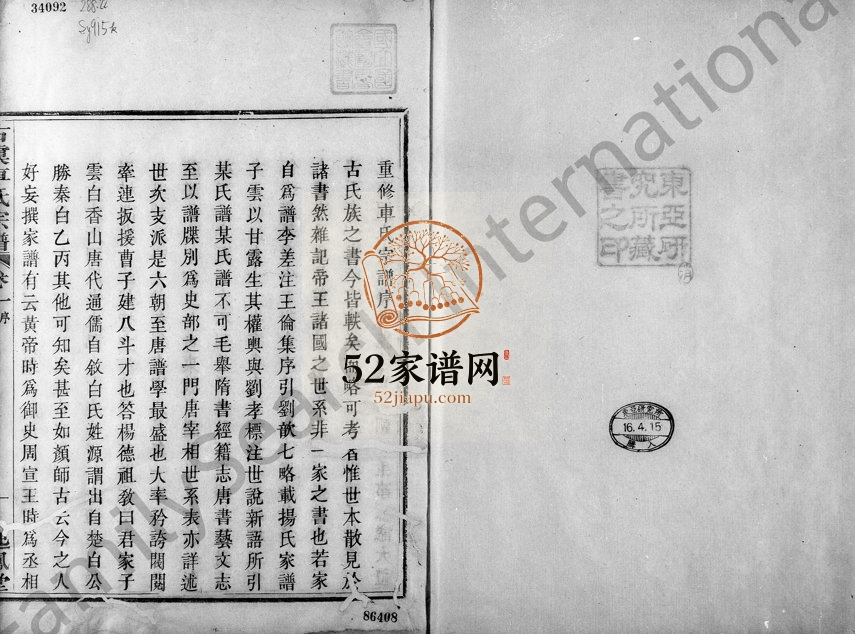 34092
重修車氏宗譜序
古氏族之書今皆軼矣 略可考者惟世本散見於
諸書然雜記帝王諸國之世系非一家之書也若家
自爲譜李差注王倫集序引劉歆七略載揚氏家譜
子雲以甘露生其權輿與劉孝標注世說新語所引
某氏譜某氏譜不可毛舉隋書經籍志唐書藝文志
至以譜牒別爲史部之一門唐宰相世系表亦詳述
世次支派是六朝至唐譜學最盛也大率矜誇閥閱
牽連扳援曹子建八斗才也答楊德祖敎曰君家子
雲白香山唐代通儒自敘白氏姓源謂出自楚白公
勝秦白乙丙其他可知矣甚至如顏師古云今之人
好妄撰家譜有云黃帝時爲御史周宣王時爲丞相
虞車氏宗譜
卷一序
一
鳳堂
86408
東亞研
究所藏
書之印
16.4.15
52家谱网
52jiapu.com
FamilySearch International